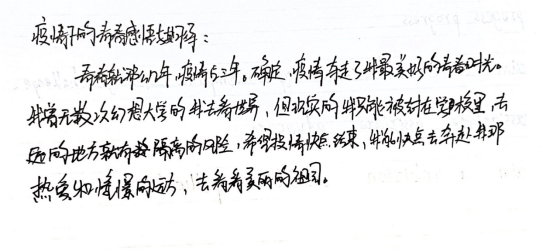 疫情下的青春感悟如释：
青春就那么几年，疫情占三年。确定，疫情夺走了我最美好的青春时光。
我曾无数次幻想大学的我去看世界，但现实的我只能被封在学校里，去
远的地方就有隔离的风险，希望疫情快点结束，我能快点去奔赴我那
热爱和憧憬的远方，去看看美丽的祖国。